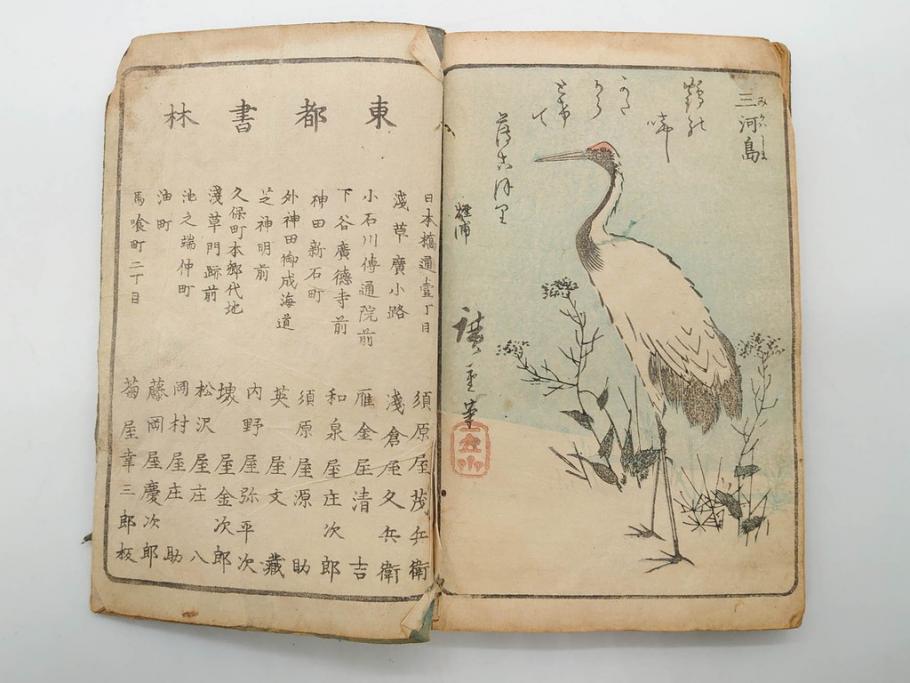 三河島
みかはしま
廣重筆
東都書林
日本橋通壹丁目 須原屋茂兵衛
淺草廣小路 淺倉屋久兵衛
小石川傳通院前 雁金屋清吉
下谷廣徳寺前 和泉屋庄次郎
神田新石町 須原屋源助
外神田御成海道 英屋文蔵
芝神明前 内野屋弥平次
久保町本郷代地 屋金次郎
淺草門跡前 松沢屋庄八
池之端仲町 岡村屋庄助
油町 藤岡屋慶次郎
馬喰町二丁目 菊屋幸三郎板